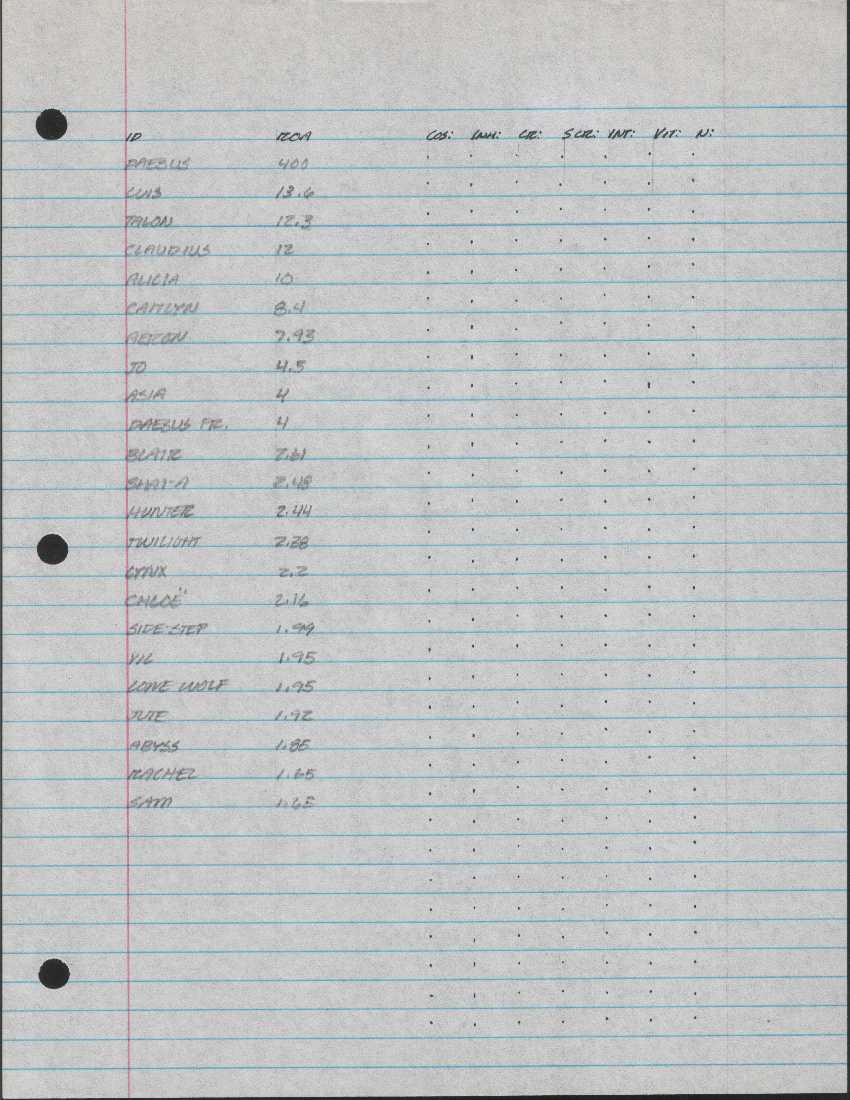 ID ROA COS: INH: CR: SCR: INT: VIT: N:
DAEBUS 400
LUIS 13.6
TALON 12.3
CLAUDIUS 12
ALICIA 10
CAITLYN 8.4
AERON 7.93
JO 4.5
ASIA 4
DAEBUS PR. 4
BLAIR 2.61
SHAI-A 2.48
HUNTER 2.44
TWILIGHT 2.28
LYNX 2.2
CHLOË 2.16
SIDE-STEP 1.99
VIC 1.95
LONE WOLF 1.95
JUTE 1.92
ABYSS 1.85
RACHEL 1.65
SAM